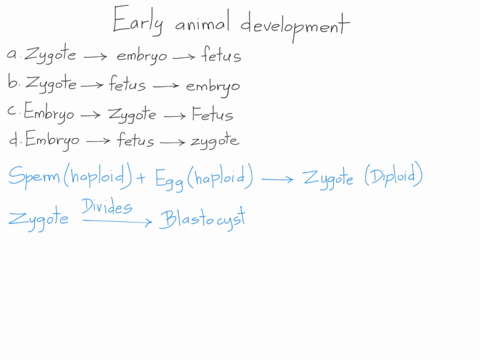 Early animal development
a. Zygote → embryo → fetus
b. Zygote → fetus → embryo
c. Embryo → Zygote → Fetus
d. Embryo → fetus → zygote
Sperm (haploid) + Egg (haploid) → Zygote (Diploid)
Zygote Divides → Blastocyst